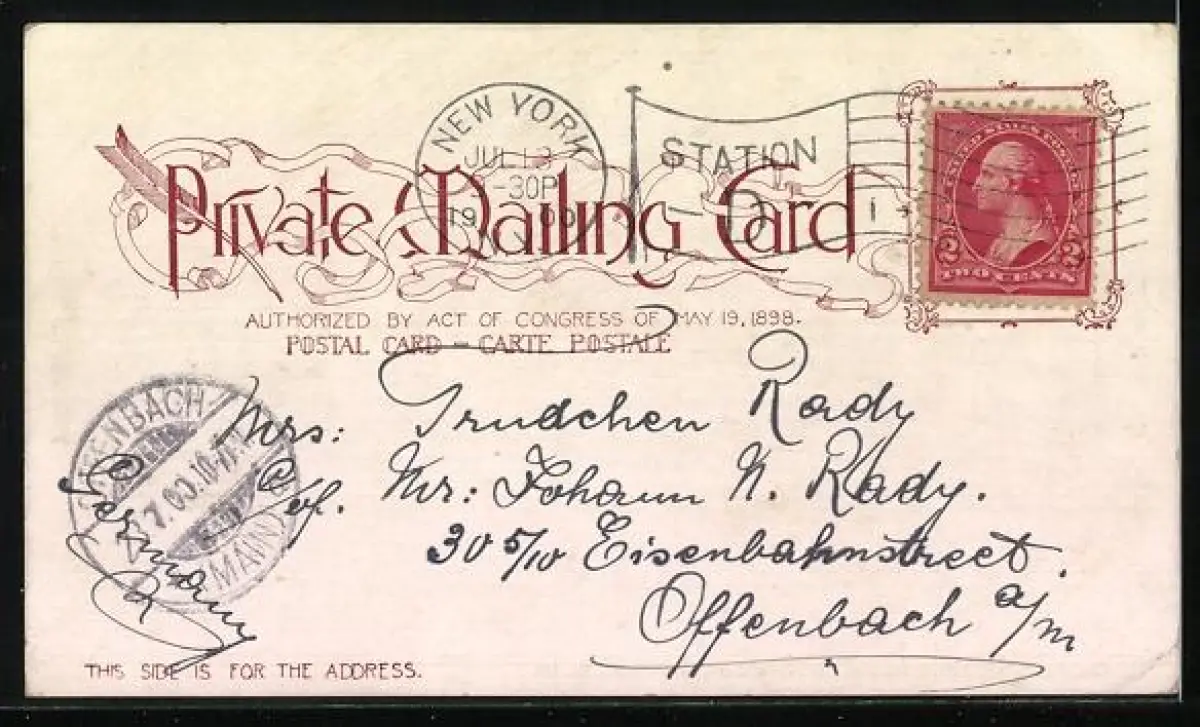 NEW YORK
JUL 13
-30P
1900
STATION
D
1
UNITED STATES POSTAGE
2 2
TWO CENTS
Private Mailing Card
AUTHORIZED BY ACT OF CONGRESS OF MAY 19, 1898.
POSTAL CARD – CARTE POSTALE
OFFENBACH
7.00.10-11
(MAIN)
Mrs: Trudchen Rady
c/of. Mr: Johann N. Rady.
30 5/10 Eisenbahnstreet.
Offenbach a/m
Germany
THIS SIDE IS FOR THE ADDRESS.